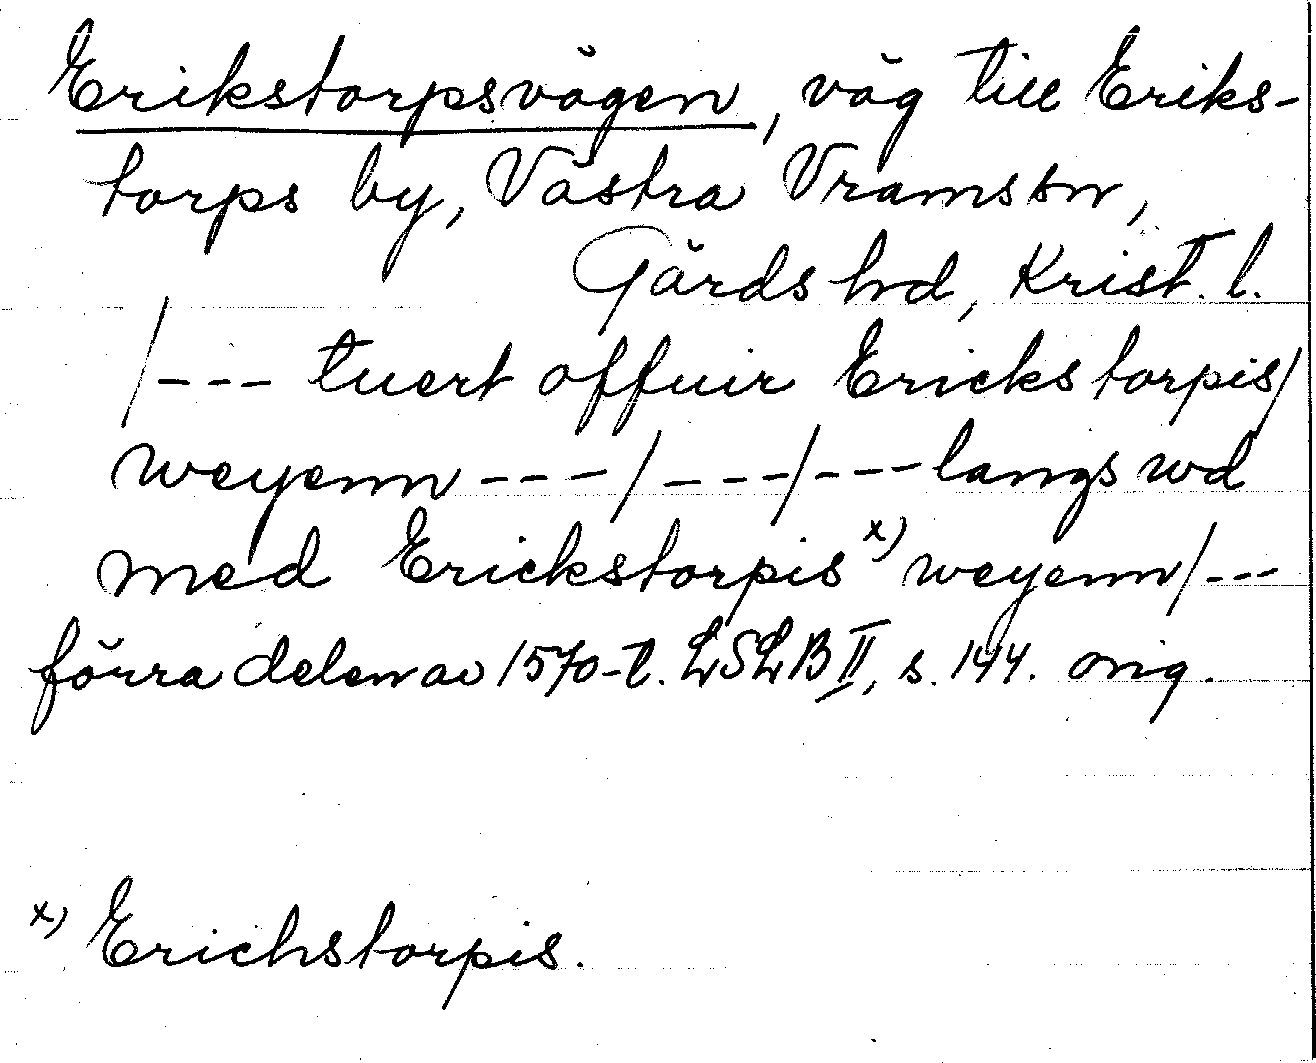 Erikstorpsvägen, väg till Eriks-
torps by, Västra Vramssn,
Gärds hd, Krist. l.
/--- tuert offuir Erickstorpis/
weyenn ---/ ---/--- langs wd
med Erickstorpis x) weyenn/---
förra delen av 1570-t. LSLB II, s. 144. orig.
x) Erichstorpis.